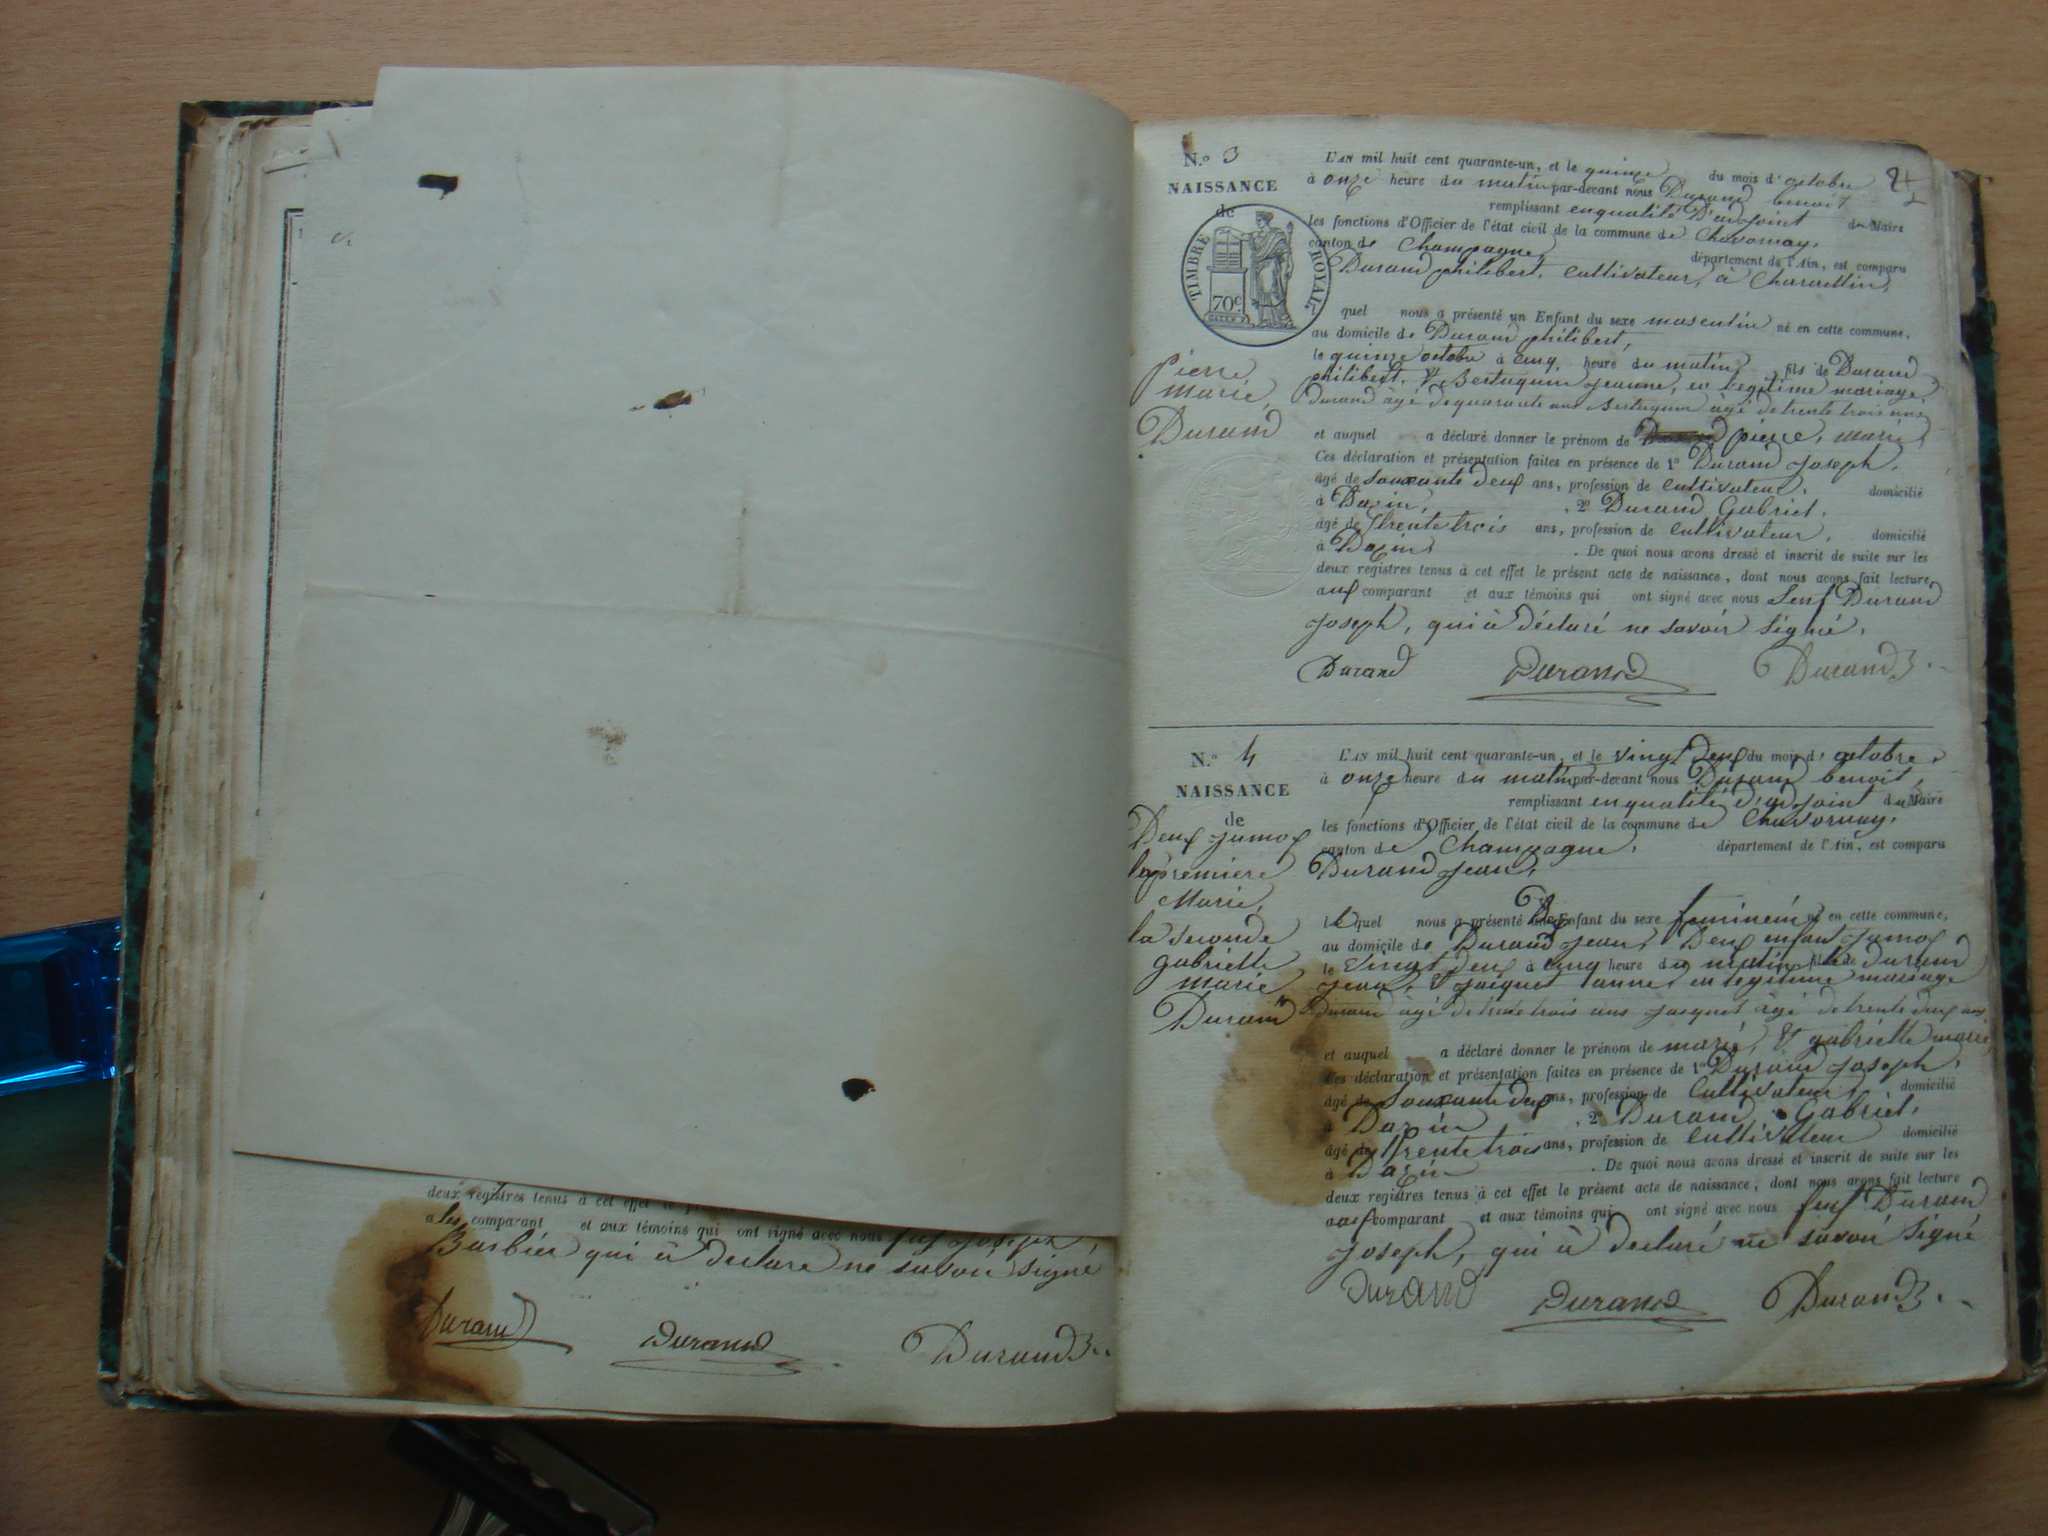 deux registres tenus à cet effet le
comparant et aux témoins qui ont signé avec nous
Barbier qui à declaré ne savoir signé
Durand Durand Durand
N.° 3
NAISSANCE
de
TIMBRE ROYAL
70c
pierre
marie,
Durand
24
L'AN mil huit cent quarante-un, et le quinze du mois d' octobre
à onze heure du matin par-devant nous Durand benoit
remplissant enqualité D'adjoint du Maire
les fonctions d'Officier de l'état civil de la commune de Chavornay,
canton de Champagne, département de l'Ain, est comparu
Durand philibert, cultivateur, à
quel nous a présenté un Enfant du sexe masculin né en cette commune,
au domicile de Durand philibert,
le quinze octobre à cinq, heure du matin fils de Durand
philibert, & jeanne, en legitime mariage
Durand âgé de quarante ans âgé de trente trois ans
et auquel a déclaré donner le prénom de pierre, marie,
Ces déclaration et présentation faites en présence de 1° Durand Joseph,
âgé de Souxante deux ans, profession de Cultivateur, domicilié
à Dazin, , 2° Durand Gabriel,
âgé de trente trois ans, profession de Cultivateur, domicilié
à Dazin . De quoi nous avons dressé et inscrit de suite sur les
deux registres tenus à cet effet le présent acte de naissance, dont nous avons fait lecture
aux comparant et aux témoins qui ont signé avec nous Durand
Joseph, qui à déclaré ne savoir signé,
Durand Durand Durand
N.° 4
NAISSANCE
de
Deux jumox
la première
Marie,
la seconde
gabrielle
marie
Durand
L'AN mil huit cent quarante-un, et le vingt deux du mois d' octobre,
à onze heure du matin par-devant nous Durand benoit,
remplissant enqualité d'adjoint du Maire
les fonctions d'Officier de l'état civil de la commune de Chavornay,
canton de Champagne, département de l'Ain, est comparu
Durand Jean,
le quel nous a présenté Deux Enfant du sexe feminein né en cette commune,
au domicile de Durand Jean, Deux enfant jumox
le vingt deux à cinq heure du matin de Durand
Jean, & anne, en legitime mariage
Durand âgé de trente trois ans âgé de trente deux ans
et auquel a déclaré donner le prénom de marie, & gabrielle marie,
Ces déclaration et présentation faites en présence de 1° Durand Joseph,
âgé de Souxante deux ans, profession de Cultivateur, domicilié
à Dazin , 2° Durand, Gabriel,
âgé de trente trois ans, profession de Cultivateur domicilié
à Dazin . De quoi nous avons dressé et inscrit de suite sur les
deux registres tenus à cet effet le présent acte de naissance, dont nous avons fait lecture
aux comparant et aux témoins qui ont signé avec nous Durand
Joseph, qui à declaré ne savoir signé
Durand Durand Durand